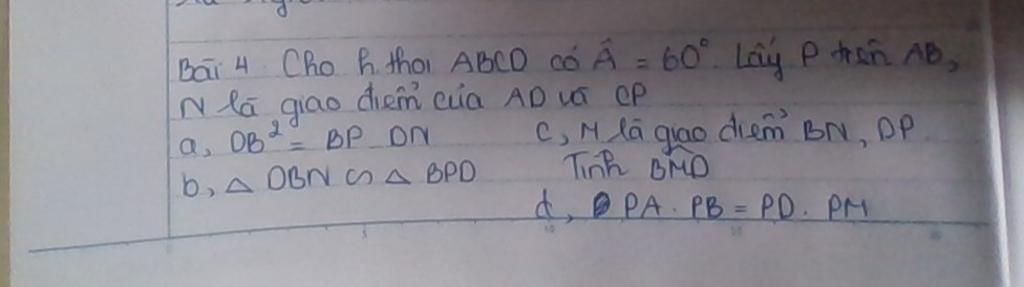 Bài 4. Cho h.thoi ABCD có Â = 60°. Lấy P trên AB,
N là giao điểm của AD và CP
a, DB² = BP. DN
b, △ DBN ∽ △ BPD
c, M là giao điểm BN, DP.
Tính BM̂D
d, PA. PB = PD. PM